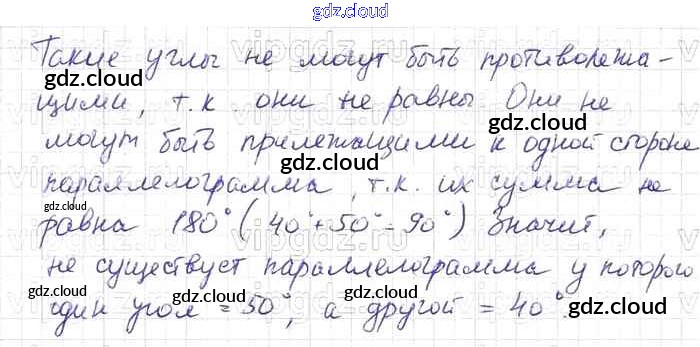 gdz.cloud
Такие углы не могут быть противолежа-
щими, т.к они не равны. Они не
могут быть прилежащими к одной стороне
параллелограмма, т.к. их сумма не
равна 180° (40°+50°=90°) Значит,
не существует параллелограмма у которого
один угол = 50°, а другой = 40°.
gdz.cloud
gdz.cloud
gdz.cloud
gdz.cloud
gdz.cloud
gdz.cloud
gdz.cloud
gdz.cloud
gdz.cloud
gdz.cloud
gdz.cloud